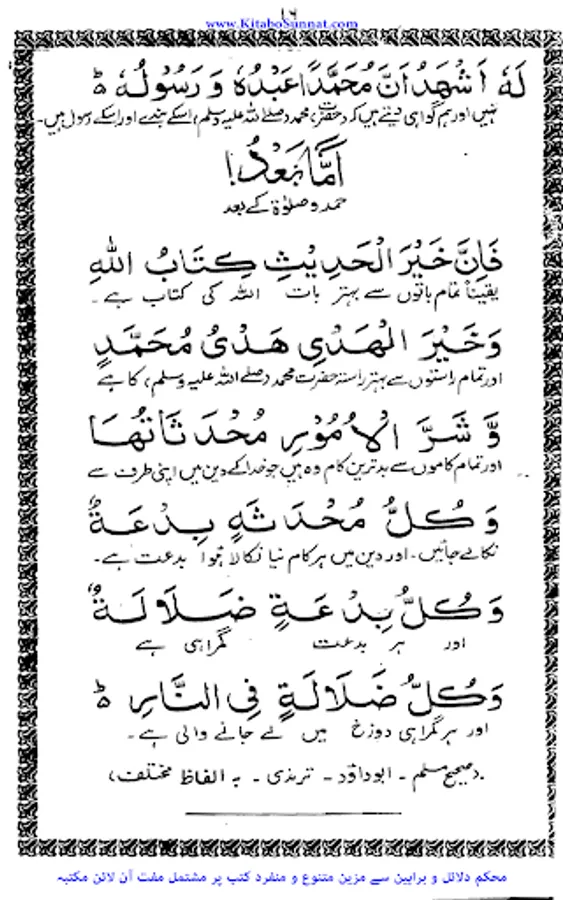 ۱۶
www.KitaboSunnat.com
لَهٗ اَشْهَدُ اَنَّ مُحَمَّدًا عَبْدُهٗ وَ رَسُوْلُهٗ ط
نہیں اور ہم گواہی دیتے ہیں کہ حضرت محمد (صلے اللہ علیہ وسلم) اسکے بندے اور اسکے رسول ہیں۔
اَمَّا بَعْدُ!
حمد و صلوٰۃ کے بعد
فَاِنَّ خَيْرَ الْحَدِيْثِ كِتَابُ اللّٰهِ
یقیناً تمام باتوں سے بہتر بات اللہ کی کتاب ہے۔
وَخَيْرَ الْهَدْيِ هَدْيُ مُحَمَّدٍ
اور تمام راستوں سے بہتر راستہ حضرت محمد (صلے اللہ علیہ وسلم) کا ہے
وَّ شَرَّ الْاُمُوْرِ مُحْدَثَاتُهَا
اور تمام کاموں سے بدترین کام وہ ہیں جو خدا کے دین میں اپنی طرف سے
وَ كُلُّ مُحْدَثَةٍ بِدْعَةٌ
نکالے جائیں۔ اور دین میں ہر کام نیا نکالا ہوا بدعت ہے۔
وَ كُلُّ بِدْعَةٍ ضَلَالَةٌ
اور ہر بدعت گمراہی ہے
وَ كُلُّ ضَلَالَةٍ فِي النَّارِ ط
اور ہر گمراہی دوزخ میں لے جانے والی ہے۔
(صحیح مسلم۔ ابوداؤد۔ ترمذی۔ بہ الفاظ مختلف)
محکم دلائل و براہین سے مزین متنوع و منفرد کتب پر مشتمل مفت آن لائن مکتبہ